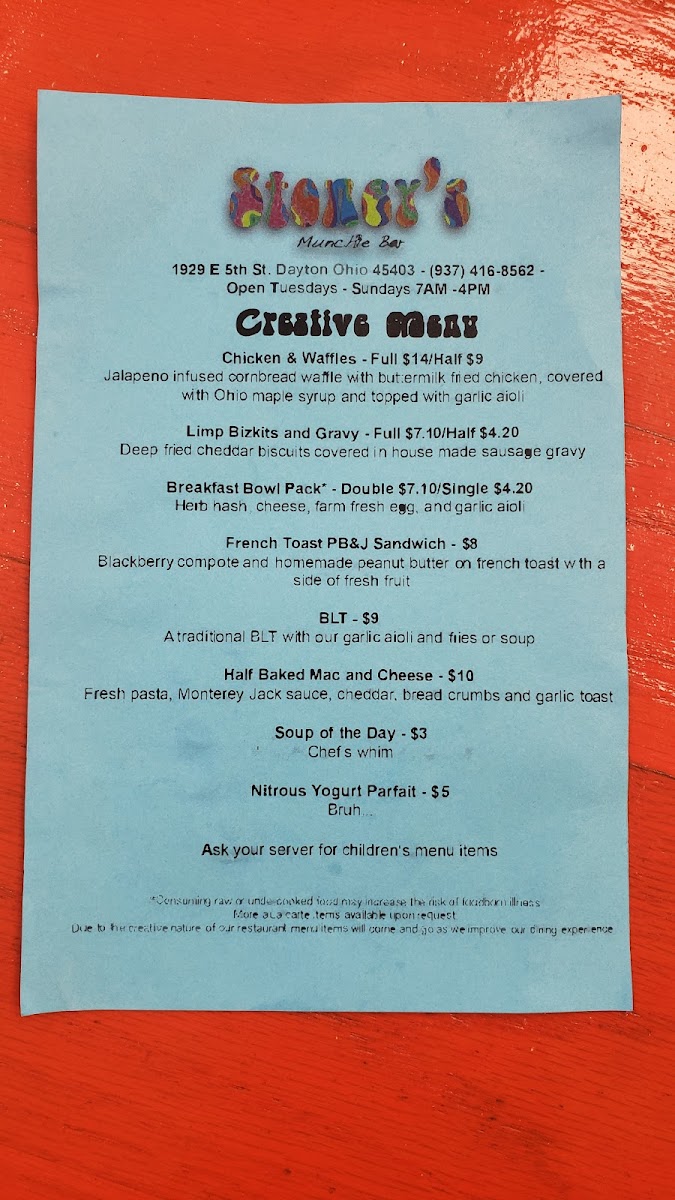 Stoner's
Munchie Bar
1929 E 5th St. Dayton Ohio 45403 - (937) 416-8562 -
Open Tuesdays - Sundays 7AM -4PM
Creative Menu
Chicken & Waffles - Full $14/Half $9
Jalapeno infused cornbread waffle with buttermilk fried chicken, covered
with Ohio maple syrup and topped with garlic aioli
Limp Bizkits and Gravy - Full $7.10/Half $4.20
Deep fried cheddar biscuits covered in house made sausage gravy
Breakfast Bowl Pack* - Double $7.10/Single $4.20
Herb hash, cheese, farm fresh egg, and garlic aioli
French Toast PB&J Sandwich - $8
Blackberry compote and homemade peanut butter on french toast with a
side of fresh fruit
BLT - $9
A traditional BLT with our garlic aioli and fries or soup
Half Baked Mac and Cheese - $10
Fresh pasta, Monterey Jack sauce, cheddar, bread crumbs and garlic toast
Soup of the Day - $3
Chef's whim
Nitrous Yogurt Parfait - $5
Bruh...
Ask your server for children's menu items
*Consuming raw or undercooked food may increase the risk of foodborn illness
More a la carte items available upon request
Due to the creative nature of our restaurant menu items will come and go as we improve our dining experience